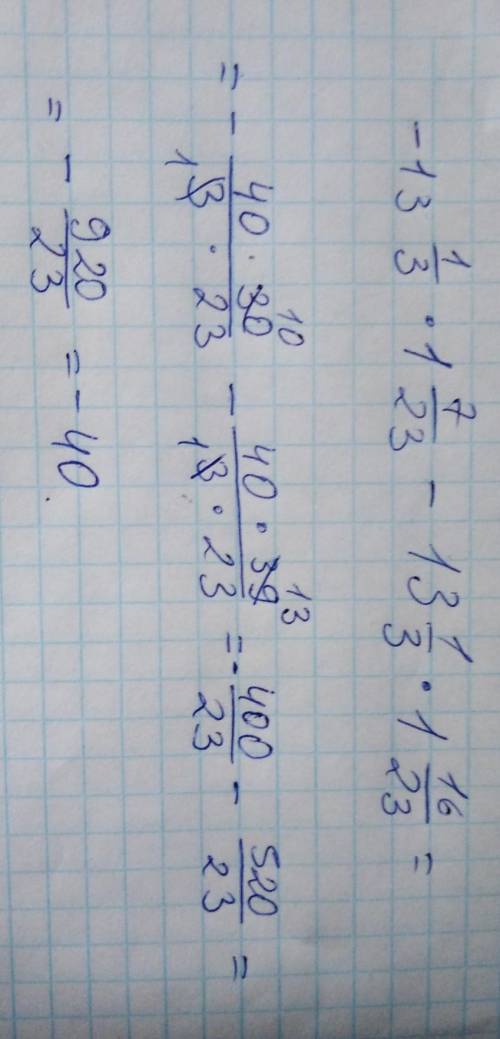 -13 1/3 · 1 7/23 - 13 1/3 · 1 16/23 =
= - 40 · 30 10 / 1 3 · 23 - 40 · 39 13 / 1 3 · 23 = - 400/23 - 520/23 =
= - 920/23 = - 40.